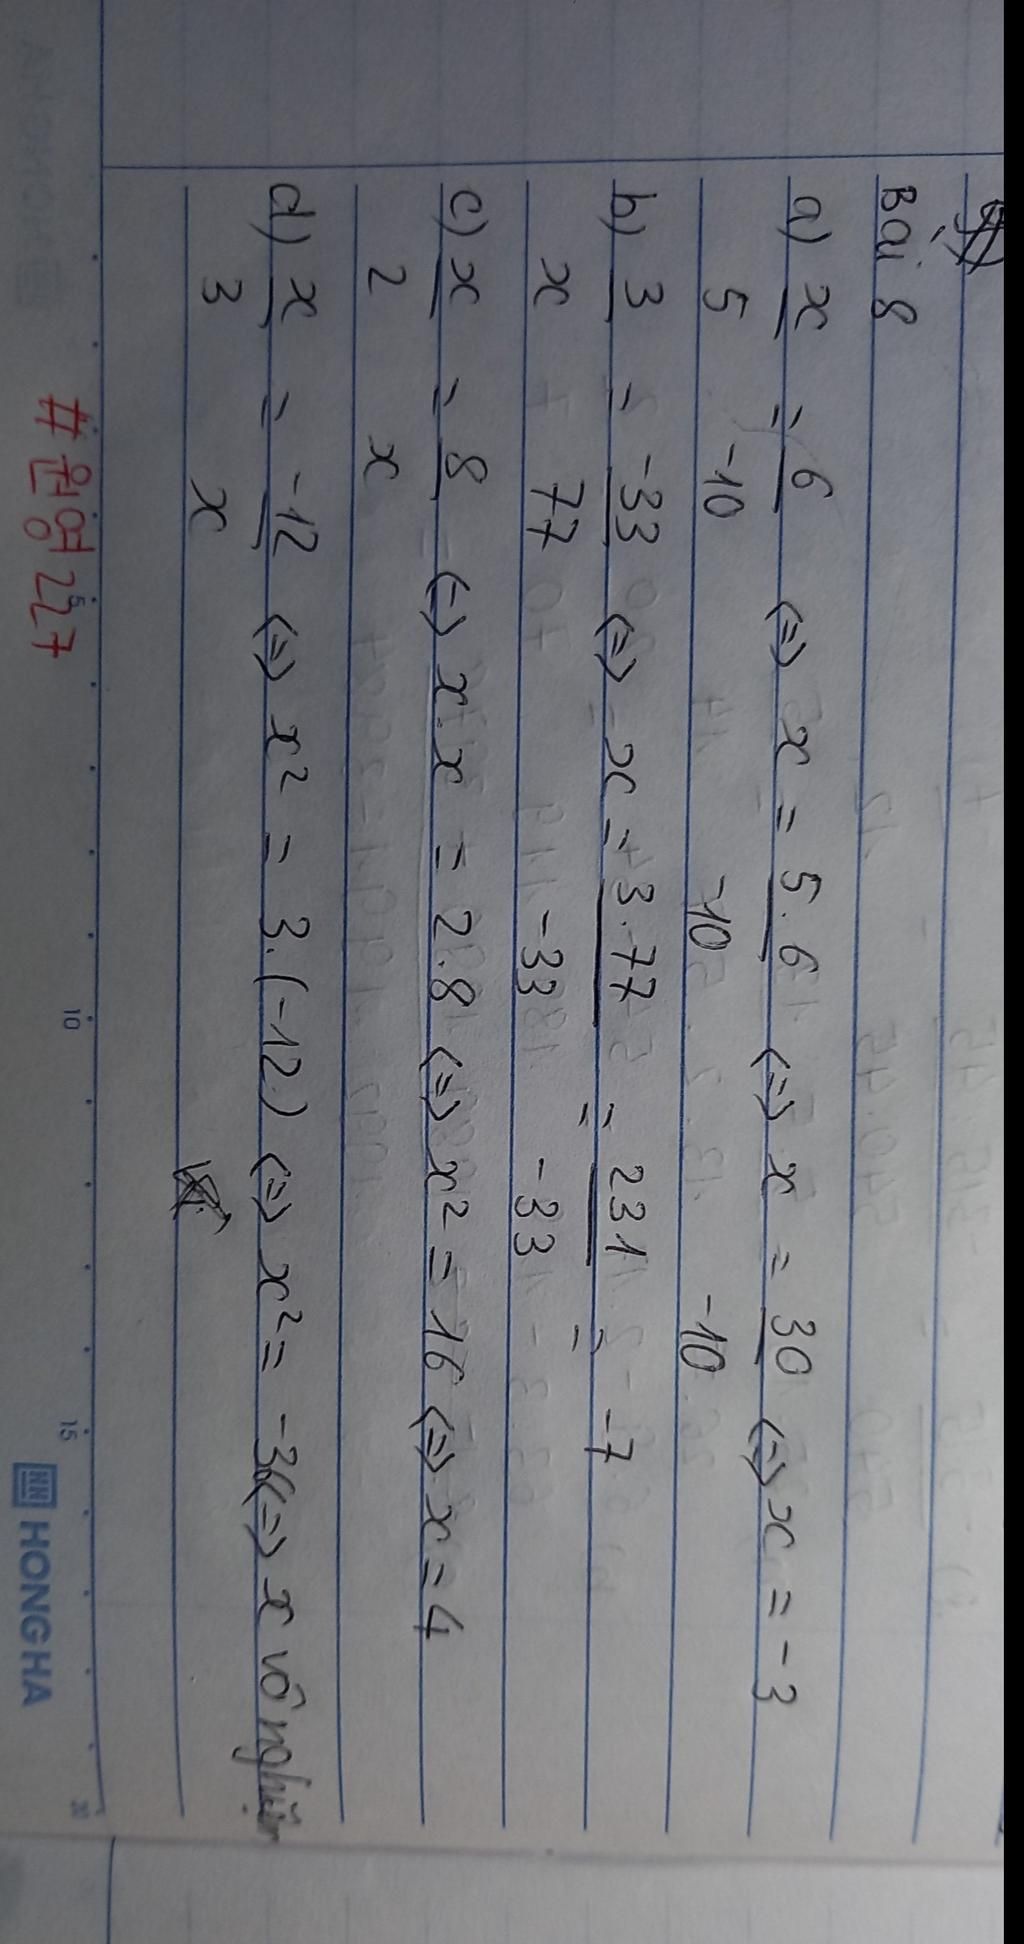 Bài 8
a) x/5 = 6/-10 (=) x = 5.6/-10 (=) x = 30/-10 (=) x = -3
b) 3/x = -33/77 (=) x = 3.77/-33 = 231/-33 = -7
c) x/2 = 8/x (=) x.x = 2.8 (=) x² = 16 (=) x = 4
d) x/3 = -12/x (=) x² = 3.(-12) (=) x² = -36 (=) x vô nghiệm
#원영227
5 10 15 20
HH HONG HA